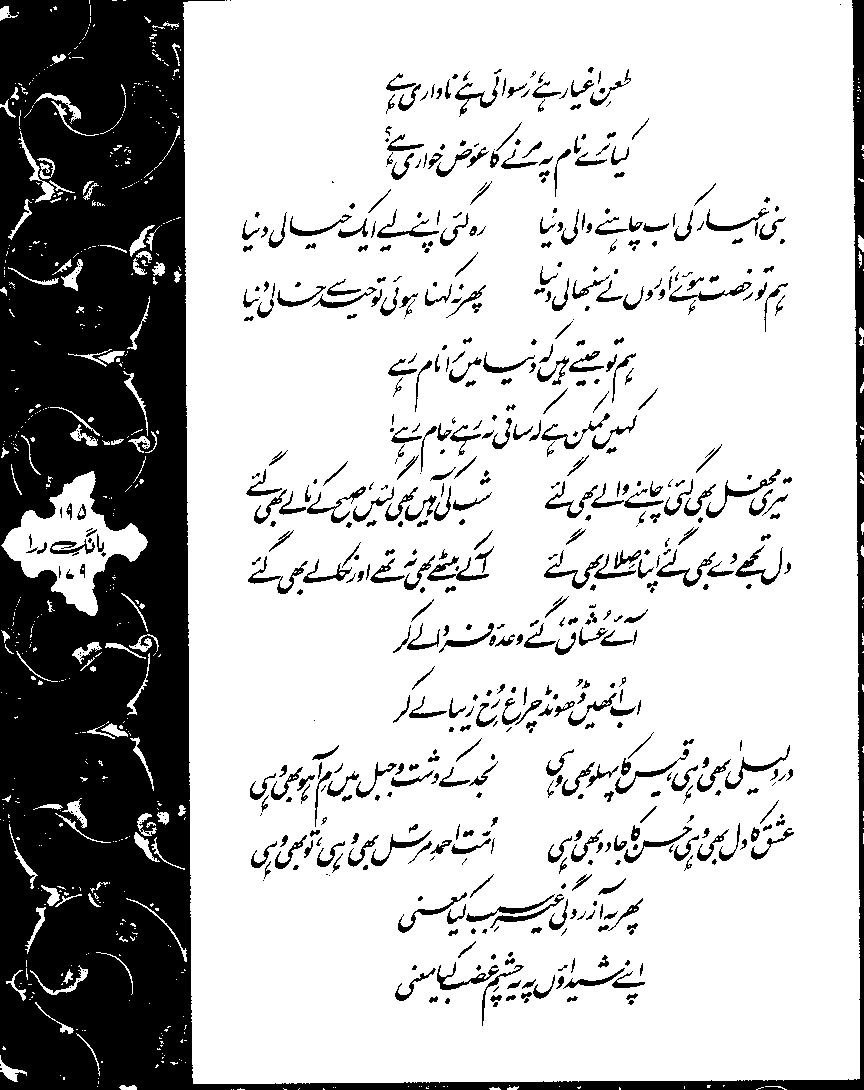 طعنِ اغیار ہے، رُسوائی ہے، ناداری ہے
کیا ترے نام پہ مرنے کا عوَض خواری ہے؟
بنی اغیار کی اب چاہنے والی دنیا رہ گئی اپنے لیے ایک خیالی دنیا
ہم تو رخصت ہوئے، اَوروں نے سنبھالی دنیا پھر نہ کہنا ہوئی توحید سے خالی دنیا
ہم تو جیتے ہیں کہ دنیا میں ترا نام رہے
کہیں ممکن ہے کہ ساقی نہ رہے، جام رہے!
تیری محفل بھی گئی، چاہنے والے بھی گئے شب کی آہیں بھی گئیں، صبح کے نالے بھی گئے
دل تجھے دے بھی گئے، اپنا صِلا لے بھی گئے آ کے بیٹھے بھی نہ تھے اور نکالے بھی گئے
آئے عُشّاق، گئے وعدۂ فردا لے کر
اب اُنھیں ڈھونڈ چراغِ رُخِ زیبا لے کر
دردِ لیلیٰ بھی وہی، قیس کا پہلو بھی وہی نجد کے دشت و جبل میں رمِ آہو بھی وہی
عشق کا دل بھی وہی، حُسن کا جادو بھی وہی اُمّتِ احمدِ مرسل بھی وہی، تُو بھی وہی
پھر یہ آزردگیِ غیرِ سبب کیا معنی
اپنے شیداؤں پہ یہ چشمِ غضب کیا معنی
۱۹۵
بانگِ درا
۱۷۹